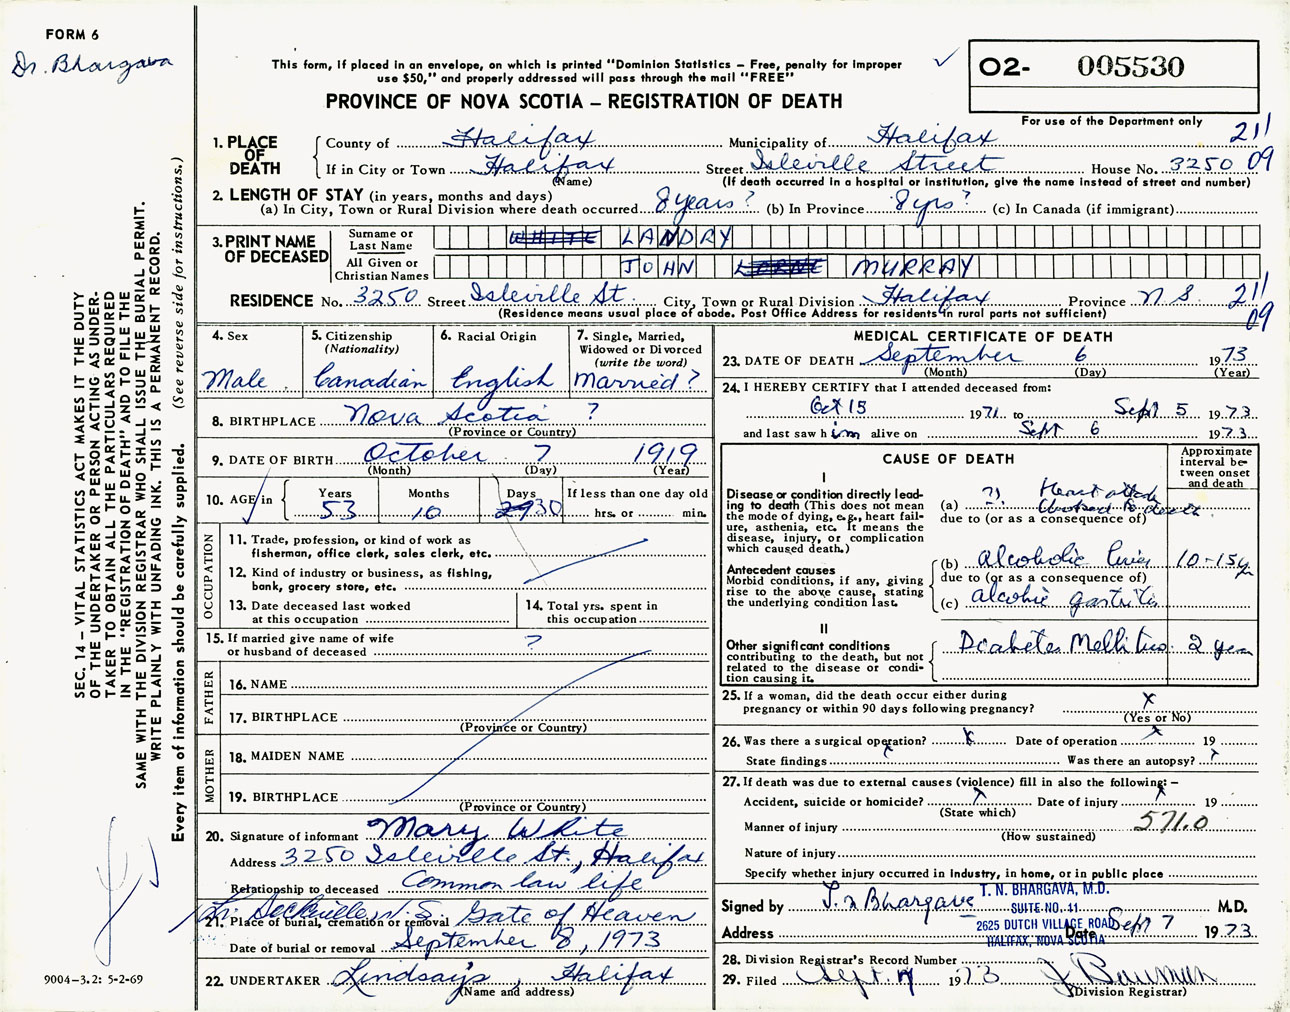 FORM 6
Dr. Bhargava
This form, if placed in an envelope, on which is printed "Dominion Statistics – Free, penalty for improper
use $50," and properly addressed will pass through the mail "FREE"
✓
PROVINCE OF NOVA SCOTIA – REGISTRATION OF DEATH
O2- 005530
For use of the Department only
SEC. 14 – VITAL STATISTICS ACT MAKES IT THE DUTY
OF THE UNDERTAKER OR PERSON ACTING AS UNDER-
TAKER TO OBTAIN ALL THE PARTICULARS REQUIRED
IN THE "REGISTRATION OF DEATH" AND TO FILE THE
SAME WITH THE DIVISION REGISTRAR WHO SHALL ISSUE THE BURIAL PERMIT.
WRITE PLAINLY WITH UNFADING INK. THIS IS A PERMANENT RECORD.
Every item of information should be carefully supplied. (See reverse side for instructions.)
1. PLACE OF DEATH
County of Halifax Municipality of Halifax 211
If in City or Town Halifax Street Isleville Street House No. 3250 09
(Name) (If death occurred in a hospital or institution, give the name instead of street and number)
2. LENGTH OF STAY (in years, months and days)
(a) In City, Town or Rural Division where death occurred 8 years? (b) In Province 8 yrs? (c) In Canada (if immigrant)
3. PRINT NAME OF DECEASED
Surname or Last Name WHITE LANDRY
All Given or Christian Names JOHN LORNE MURRAY
RESIDENCE No. 3250 Street Isleville St. City, Town or Rural Division Halifax Province N.S. 211
(Residence means usual place of abode. Post Office Address for residents in rural parts not sufficient) 09
4. Sex
Male
5. Citizenship
(Nationality)
Canadian
6. Racial Origin
English
7. Single, Married,
Widowed or Divorced
(write the word)
Married?
8. BIRTHPLACE Nova Scotia ?
(Province or Country)
9. DATE OF BIRTH October 7 1919
(Month) (Day) (Year)
10. AGE in
Years 53
Months 10
Days 29 30
If less than one day old
hrs. or min.
OCCUPATION
11. Trade, profession, or kind of work as
fisherman, office clerk, sales clerk, etc.
12. Kind of industry or business, as fishing,
bank, grocery store, etc.
13. Date deceased last worked
at this occupation
14. Total yrs. spent in
this occupation
15. If married give name of wife
or husband of deceased ?
FATHER
16. NAME
17. BIRTHPLACE
(Province or Country)
MOTHER
18. MAIDEN NAME
19. BIRTHPLACE
(Province or Country)
20. Signature of informant Mary White
Address 3250 Isleville St., Halifax
Relationship to deceased Common law life
Lr. Sackville N.S. Gate of Heaven
21. Place of burial, cremation or removal
Date of burial or removal September 8, 1973
22. UNDERTAKER Lindsay's, Halifax
(Name and address)
9004-3.2: 5-2-69
MEDICAL CERTIFICATE OF DEATH
23. DATE OF DEATH September 6 1973
(Month) (Day) (Year)
24. I HEREBY CERTIFY that I attended deceased from:
Oct 15 1971 to Sept 5 1973
and last saw him alive on Sept 6 1973
CAUSE OF DEATH
Approximate
interval be-
tween onset
and death
I
Disease or condition directly lead-
ing to death (This does not mean
the mode of dying, e.g., heart fail-
ure, asthenia, etc. It means the
disease, injury, or complication
which caused death.)
(a) ?! Heart attack
Choked to death
due to (or as a consequence of)
Antecedent causes
Morbid conditions, if any, giving
rise to the above cause, stating
the underlying condition last.
(b) alcoholic liver 10-15 y
due to (or as a consequence of)
(c) alcohic gastritis
II
Other significant conditions
contributing to the death, but not
related to the disease or condi-
tion causing it.
Diabetes Mellitus 2 years
25. If a woman, did the death occur either during
pregnancy or within 90 days following pregnancy? x
(Yes or No)
26. Was there a surgical operation? x Date of operation x 19
State findings Was there an autopsy? ?
27. If death was due to external causes (violence) fill in also the following: –
Accident, suicide or homicide? x Date of injury x 19
(State which)
Manner of injury 571.0
(How sustained)
Nature of injury
Specify whether injury occurred in industry, in home, or in public place
Signed by T. N. Bhargava M.D.
T. N. BHARGAVA, M.D.
SUITE NO. 11
2625 DUTCH VILLAGE ROAD
HALIFAX, NOVA SCOTIA
Address Date Sept 7 1973
28. Division Registrar's Record Number
29. Filed Sept. 7 1973
(Division Registrar)